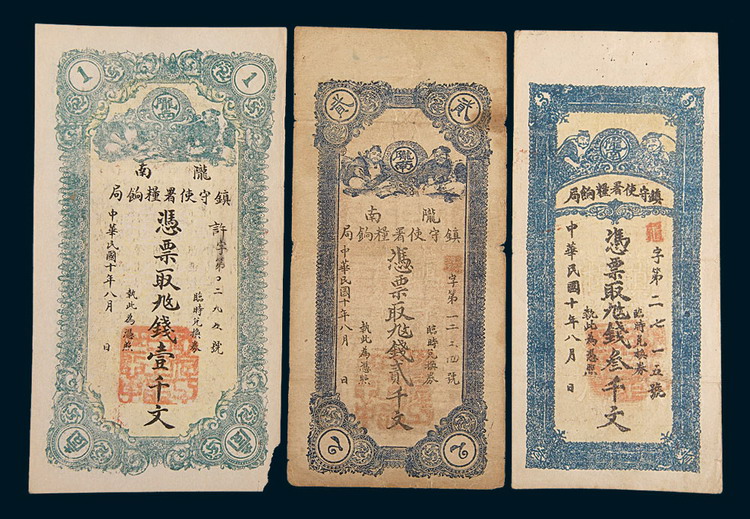 1 1
隴南
鎮守使署糧餉局
憑票取兆錢壹千文
許字第 二九五號
臨時兌換券
執此為憑照
中華民國十年八月 日
貳 貳
隴南
隴南
鎮守使署糧餉局
憑票取兆錢貳千文
字第一二三四號
臨時兌換券
執此為憑照
中華民國十年八月 日
2 2
鎮守使署糧餉局
憑票取兆錢叁千文
字第二七一五號
臨時兌換券
執此為憑照
中華民國十年八月 日